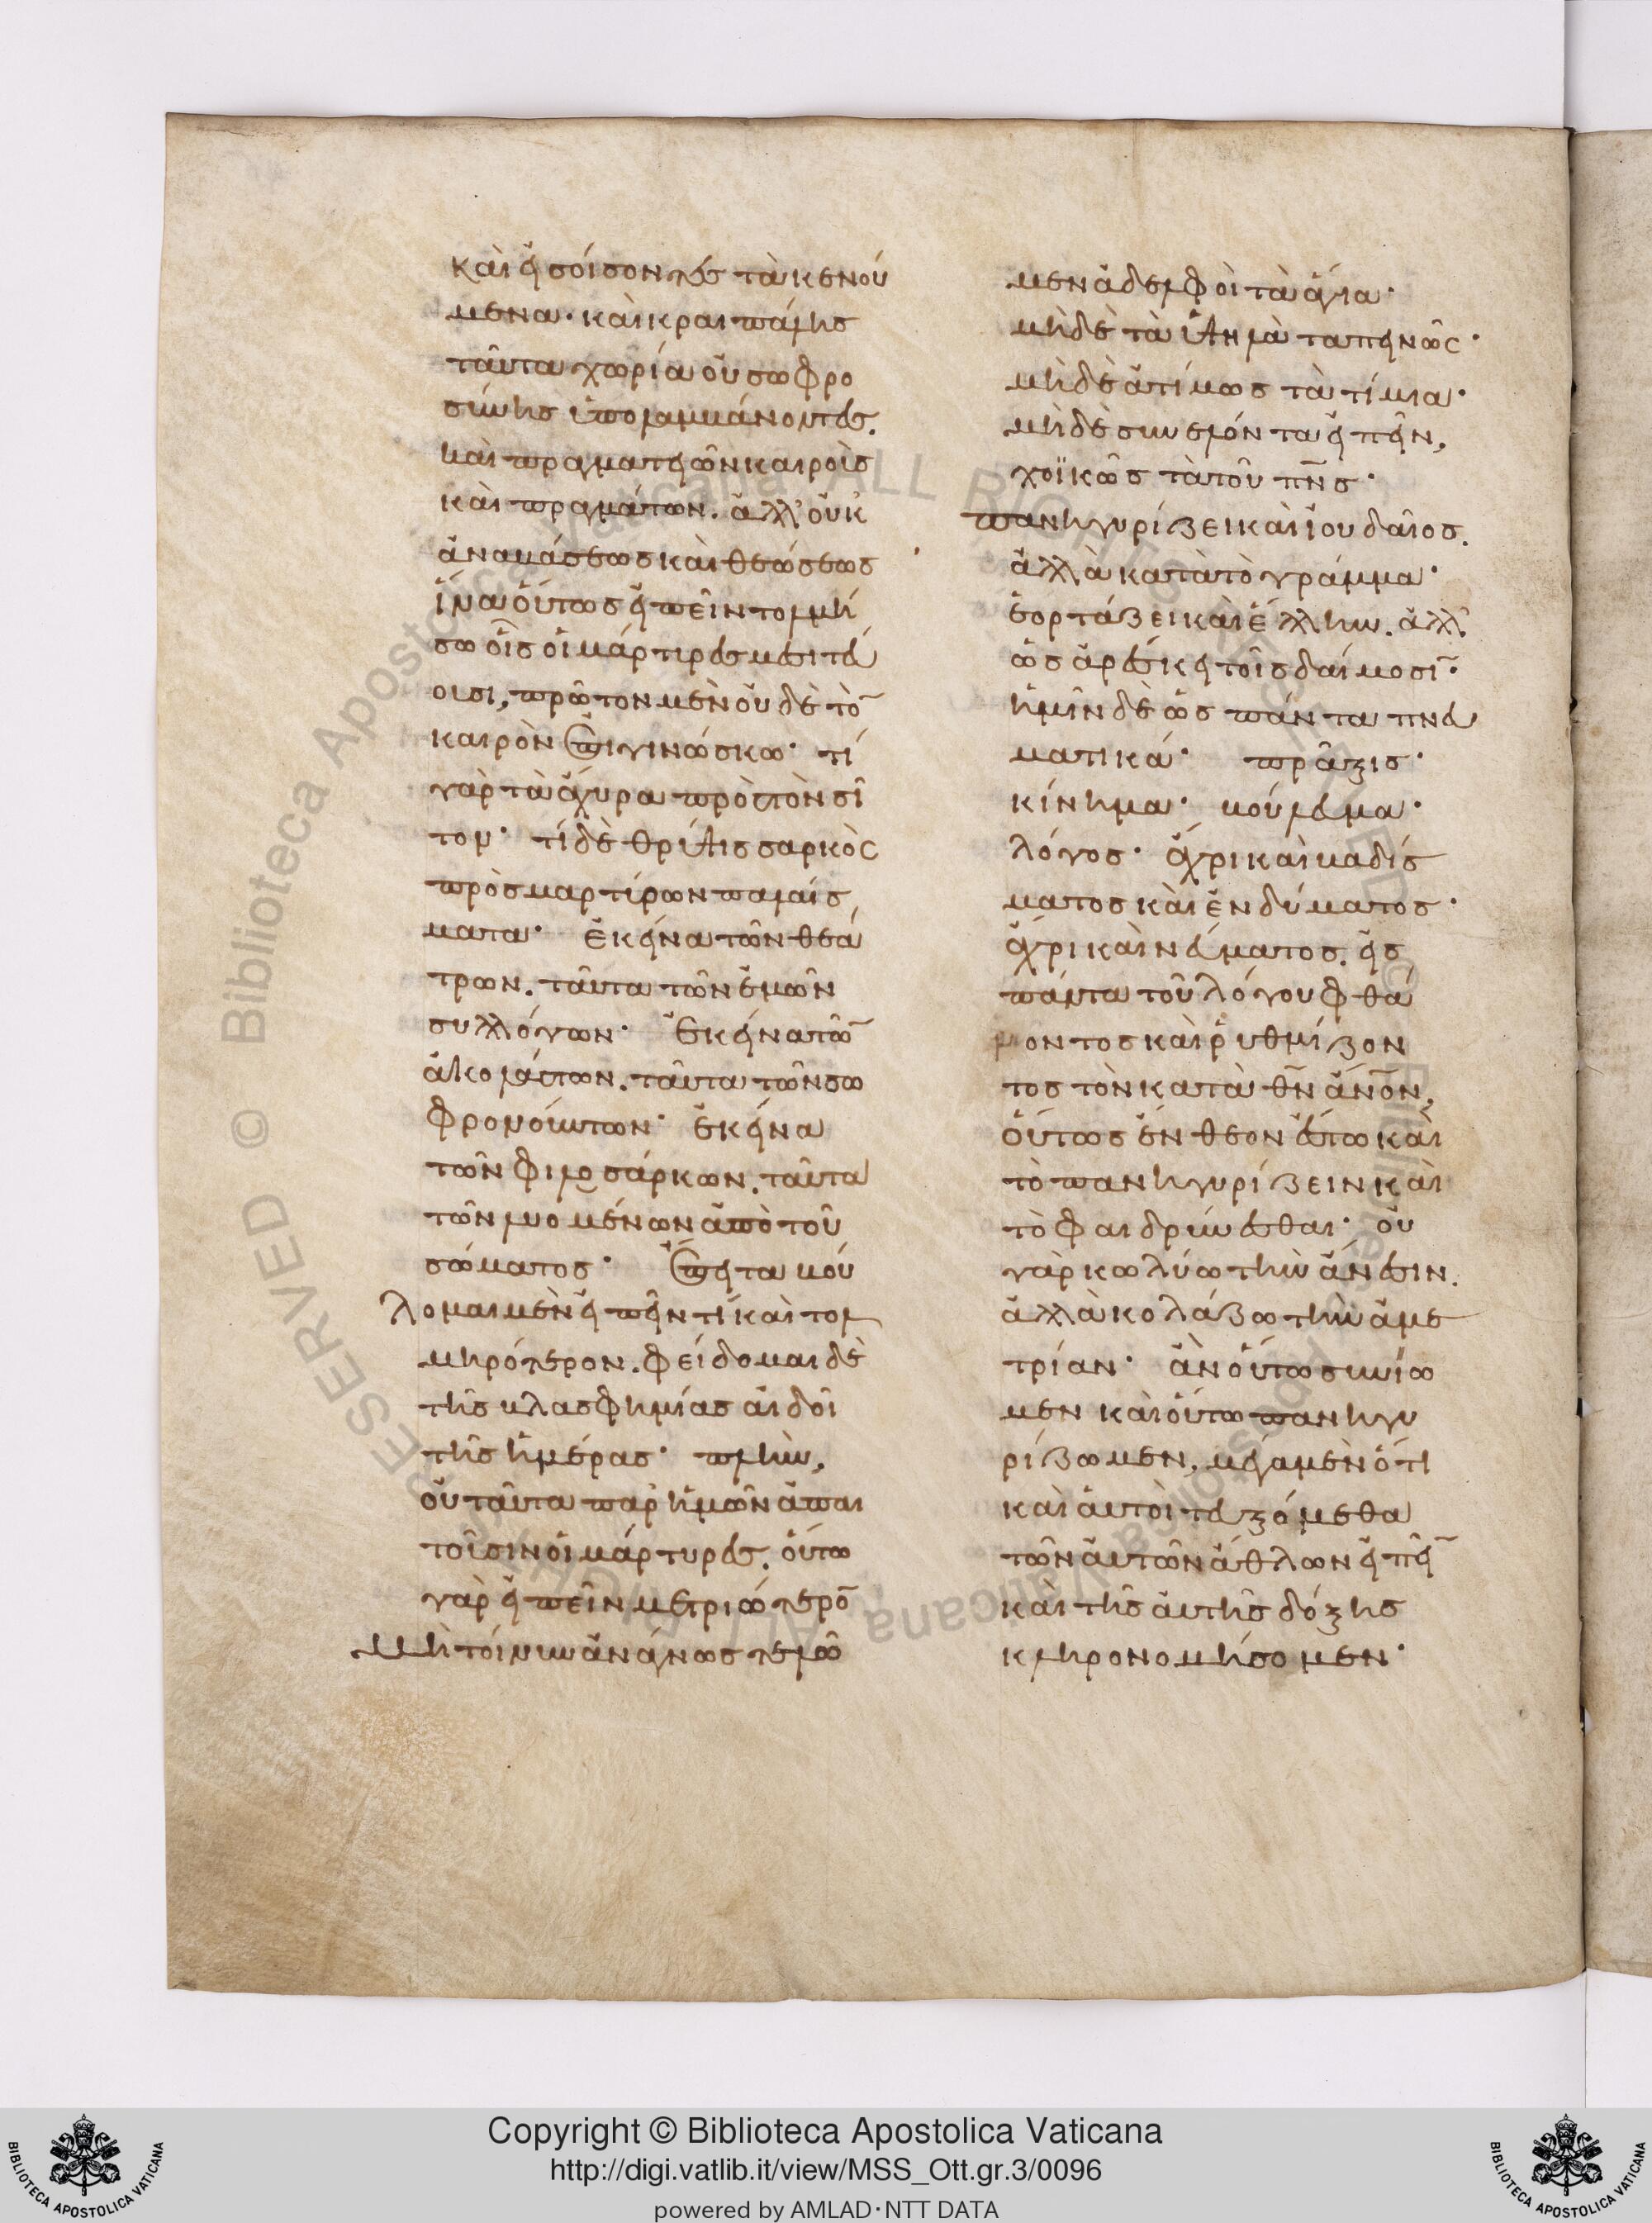 καὶ εἰσοίσοντες τὰ κενού
μενα· καὶ κραιπάλης
ταῦτα χωρία οὐ σωφρο
σύνης ὑπολαμβάνοντες.
καὶ πραγματειῶν καιροὺς
καὶ πραγμάτων. ἀλλ' οὐκ
ἀναβάσεως καὶ θεώσεως
ἵνα οὕτως εἰπεῖν τολμή
σω οἷς οἱ μάρτυρες μεσιτεύ
ουσι, πρῶτον μὲν οὐδὲ τὸ̄
καιρὸν ἐπιγινώσκω· τί
γὰρ τὰ ἄχυρα πρὸς τὸν σῖ
τον· τί δὲ θρύψις σαρκὸς
πρὸς μαρτύρων παλαίσ
ματα· ἐκεῖνα τῶν θεά
τρων. ταῦτα τῶν ἐμῶν
συλλόγων· ἐκεῖνα τῶ̄
ἀκολάστων. ταῦτα τῶν σω
φρονούντων· ἐκεῖνα
τῶν φιλοσάρκων. ταῦτα
τῶν λυομένων ἀπὸ τοῦ
σώματος· ἔπειτα βού
λομαι μὲν εἰπεῖν τί καὶ τολ
μηρότερον. φείδομαι δὲ
τῆς βλασφημίας αἰδοῖ
τῆς ἡμέρας· πλὴν,
οὐ ταῦτα παρ' ἡμῶν ἀπαι
τοῦσιν οἱ μάρτυρες. οὕτω
γὰρ εἰπεῖν μετριώτερο̄
Μὴ τοίνυν ἀνάγνως τελῶ
μεν ἀδελφοὶ τὰ ἅγια·
μὴδὲ τὰ ὑψηλὰ ταπεινῶς·
μὴδὲ ἀτίμως τὰ τίμια·
μὴδὲ συνελόντα εἰπεῖν,
χοϊκῶς τὰ τοῦ πν̄ς·
πανηγυρίζει καὶ ἰουδαῖος.
ἀλλὰ κατὰ τὸ γράμμα·
ἑορτάζει καὶ ἕλλην. ἀλλ'
ὡς ἀρέσκει τοῖς δαίμοσῑ·
ἡμῖν δὲ ὡς πάντα πνευ
ματικά· πρᾶξις·
κίνημα· βούλευμα·
λόγος· ἄχρι καὶ βαδίσ
ματος καὶ ἐνδύματος·
ἄχρι καὶ νεύματος. εἰς
πάντα τοῦ λόγου φθά
νοντος καὶ ῥυθμίζον
τος τὸν κατὰ θν̄ ἄνο̄ν,
οὕτως ἔνθεον ἔστω καὶ
τὸ πανηγυρίζειν καὶ
τὸ φαιδρύνεσθαι· οὐ
γὰρ κωλύω τὴν ἄνεσιν.
ἀλλὰ κολάζω τὴν ἀμε
τρίαν· ἂν οὕτω συνίω
μεν καὶ οὕτω πανηγυ
ρίζωμεν, μέγα μὲν ὅτι
καὶ αὐτοὶ τευξόμεθα
τῶν αὐτῶν ἄθλων εἰπεῖ̄
καὶ τῆς αὐτῆς δόξης
κληρονομήσομεν·
Copyright © Biblioteca Apostolica Vaticana
http://digi.vatlib.it/view/MSS_Ott.gr.3/0096
powered by AMLAD·NTT DATA